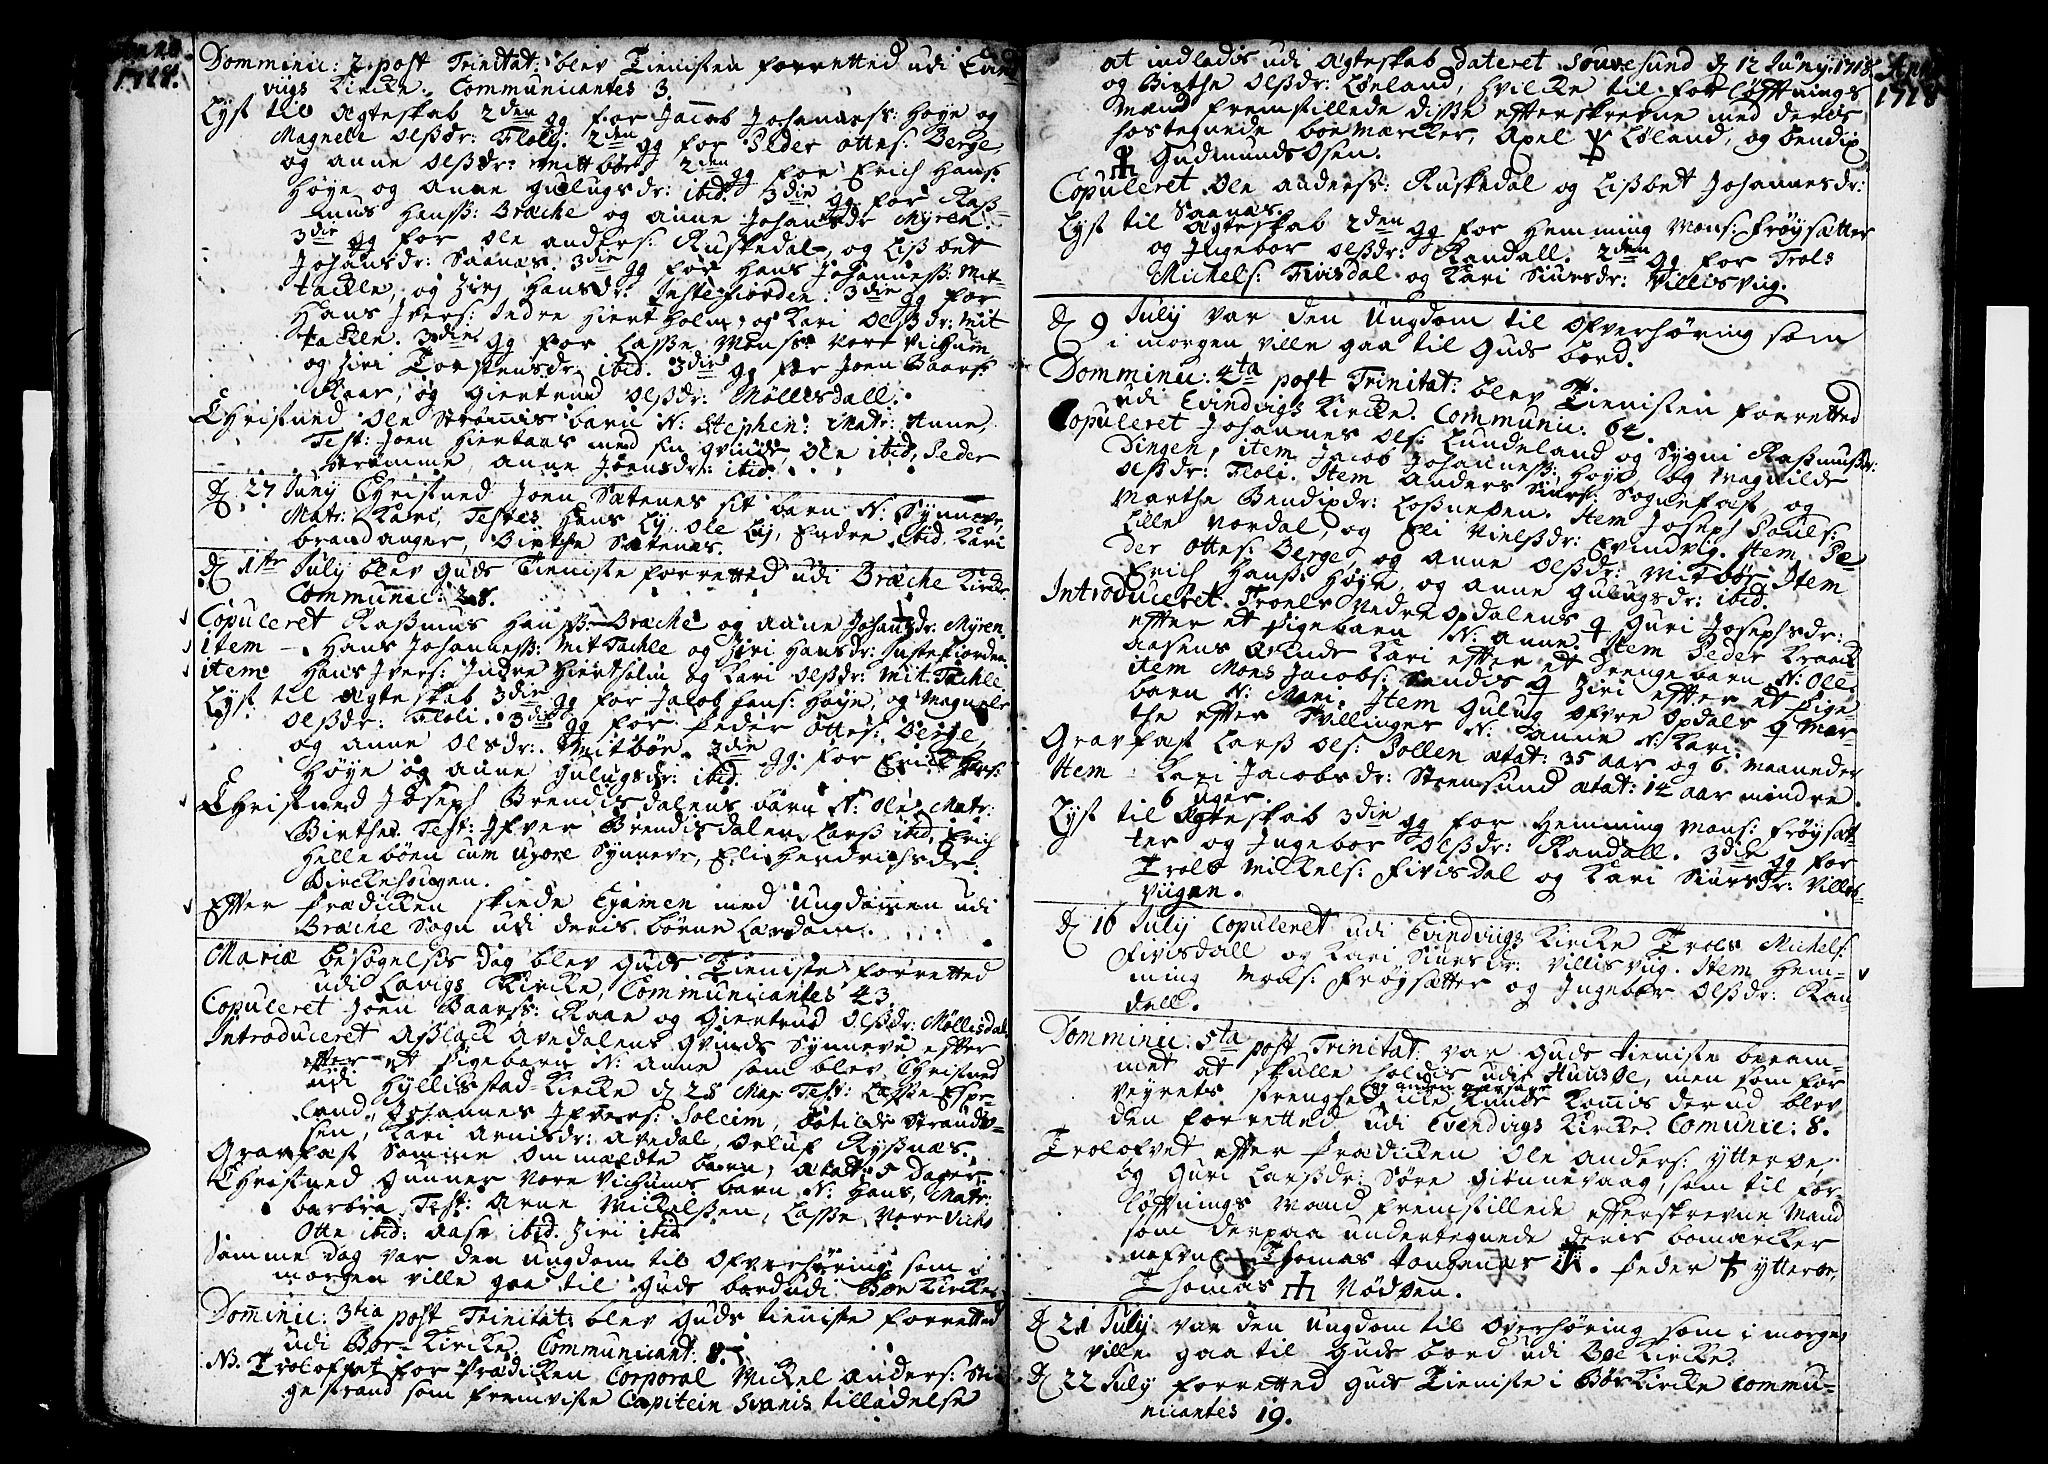 Anno
1718.
Domminic: 2. post Trinitat: blev Tienisten forretted udi Evind
viigs Kircke. Communicantes 3
Lyst til Ægteskab 2den gg for Jacob Johanness: Høye og
Magnele Olsdr: Floli. 2den gg for Peder Ottes: Berge
og Anne Olsdr: Mittbøe. 2den gg for Erich Hans:
Høye og Anne Gulugsdr: ibid. 3die gg for Rass-
mus Henss: Bræche og Anne Johansdr Myren.
3die gg for Ole Anders: Ruskedal, og Lissbet
Johansdr: Saanæs 3die gg for Hans Johanness: Mit-
tackle, og Ziri Hansdr: Instefiorden: 3die gg for
Hans Ivers: Indre Hiertholm, og Kari Olsdr: Mit
tackle. 3die gg for Lasse Monss: Nore Vichum
og Ziri Torstensdr: ibid. 3die gg for Joen Baars:
Raar, og Giertrud Olsdr: Møllesdall.
Christned Ole Strømmis barn N: Stephen. Matr: Anne,
Test: Joen Hiertaas med sin qvinde, Ole ibid, Peder
Strømme, Anne Joensdr: ibid.
D 27 Juny Christned Joen Sætenes sit barn N: Synneve,
Matr: Kari, Testes Hans Lij, Ole Lij, Endre ibid. Kari
brandanger, Birthe Sætenes.
D 1ste July blev Guds Tieniste forretted udi Bræche Kirke
Communic: 28.
Copuleret Rasmus Hanss: Bræche og Anne Johansdr: Myren.
item - Hans Johanness: Mit Tachle og Ziri Hansdr: Instefiorden.
item Hans Ivers: Indre Hiertholm og Kari Olsdr: Mit Tachle
Lyst til Ægteskab 3die gg for Jacob Hans: Høye, og Magnele
Olsdr: Floli. 3die gg for Peder Ottes: Berge
og Anne Olsdr: Mitbøe. 3die gg: for Erich Hans:
Høye og Anne Gulugsdr: ibid.
Christned Joseph Brendisdalens barn N: Ole, Matr:
Birthe. Test: Ifver Brendisdalen, Larss ibid, Erich
Hellebøen cum uxore Synneve, Eli Hendrichsdr.
Birckehougen.
Effter Prædicken skeede Examen med Ungdommen udi
Bræche Sogn udi deris børne Lærdom.
Mariæ besøgelsis dag blev Guds Tieniste forretted
udi Lavigs Kircke, Communicantes 43.
Copuleret Joen Baarss: Raar og Giertrud Olsdr: Møllisdal
Introduceret Asslack Avedalens Qvinde Synneve effter
et Pigebarn N: Anne som blev Christned
udi Hyllestad Kircke d 28 May Test: Lasse Espe-
land, Johannes Ifvers: Soleim, Botilde Strands-
sen, Kari Arnisdr: Avedal, Oeluf Rysnæs.
Gravfæst Samme Ommældte barn, ætat: 5 dager.
Christned Gunner Nore Vichums barn N: Hans, Matr:
barbra, Test: Arne Mickelssen, Lasse Nore Vichs
Otte ibid: Aase ibid. Ziri ibid
Samme dag var den Ungdom til Ofverhøring som i
morgen ville gaa til Guds bord udi Bøe Kircke
Dominic: 3tia post Trinitat: blev Guds tieniste forretted
udi Bøe Kircke Communicant: 8.
NB. Trolofvet for Prædicken Corporal Mickel Anders: Stie
gestrand som fremviste Capitein Svanis tilladelse
Anno
1718
at indladis udi Ægteskab dateret Souvesund d 12 Juny 1718
og Birthe Olsdr: Lønland, hvilcke til forløfftnings
Mænd fremstillede disse efterskrevne med deris
hostegnede boemærcker, Axel Løland, og bendix
Gudmunds Osen.
Copuleret Ole Anderss: Ruskedal og Lissbet Johannesdr:
Saanæs.
Lyst til Ægteskab 2den gg for Hemming Mons: Frøysætter
og Ingebor Olsdr: Randall. 2den gg for Trols
Michels: Fivisdal og Kari Siursdr: Villisviig.
D 9 July var den Ungdom til Ofverhøring som
i morgen ville gaa til Guds bord.
Domminic: 4ta post Trinitat: blev Tienisten forretted
udi Evindvigs Kircke. Communic: 62.
Copuleret Johannes Ols: Lundeland og Sygni Rasmusdr:
Dingen, item Jacob Johanness: Høye, og Magnilde
Olsdr: Floli. Item Anders Siurs: Sognefæst, og
Marthe Bendixdr: Losneøen. Item Joseph Pouels:
Lille Nordal, og Eli Nielsdr: Evindvig. Item Pe-
der Ottes: Berge, og Anne Olsdr: Mitbøe. Item
Erich Hanss: Høye, og Anne Gulugsdr: ibid.
Introduceret Troels Nedre Opdalens Q Guri Josephsdr:
effter et Pigebarn N: Anne. Item Peder Kraack
aasens Qvinde Kari effter et Drenge barn N: Ole.
item Mons Jacobs: Randis Q Ziri effter et Pige-
barn N: Mari. Item Gulug Øfvre Opdals Q Mar-
the effter Tvillinger N: Anne N: Kari.
Gravfæst Larss Ols: Pollen ætat: 35 aar og 6. maaneder
Item Kari Jacobsdr: Steensund ætat: 14 aar mindre
6 uger.
Lyst til Ægteskab 3die gg for Hemming Mons: Frøysæt-
ter og Ingebor Olsdr: Randall. 3die gg for
Trols Mickels: Fivisdal og Kari Siursdr: Villis-
viigen.
D 16 July Copuleret udi Evindvigs Kircke Trols Michels:
Fivisdall og Kari Siursdr: Villisviig. Item Hem-
ming Mons: Frøysætter og Ingebor Olsdr: Ran
dall.
Domminic: 5ta post Trinitat: var Guds tieniste beram-
met at skulle holdis udi Huusøe, men som for
Veyrets strenghed og anden aarsage icke kunde komis derud blev
den forretted udi Evendvigs Kircke. Comunic: 8.
Trolofvet effter Prædicken Ole Anders: Ytterøe,
og Guri Larsdr: Søre Giønnevaag, som til for-
løftnings Mænd fremstillede effterskrevne Mænd
som derpaa undertegnede deris bomærcker
nafn Thomas Tangenæs. Peder Ytterøe,
Thomas Nødøen.
D 21 July var den Ungdom til Overhøring som i morgen
ville gaa til Guds bord udi Bøe Kircke.
D 22 July forretted Guds Tieniste i Bøe Kircke Commu-
nicantes 19.